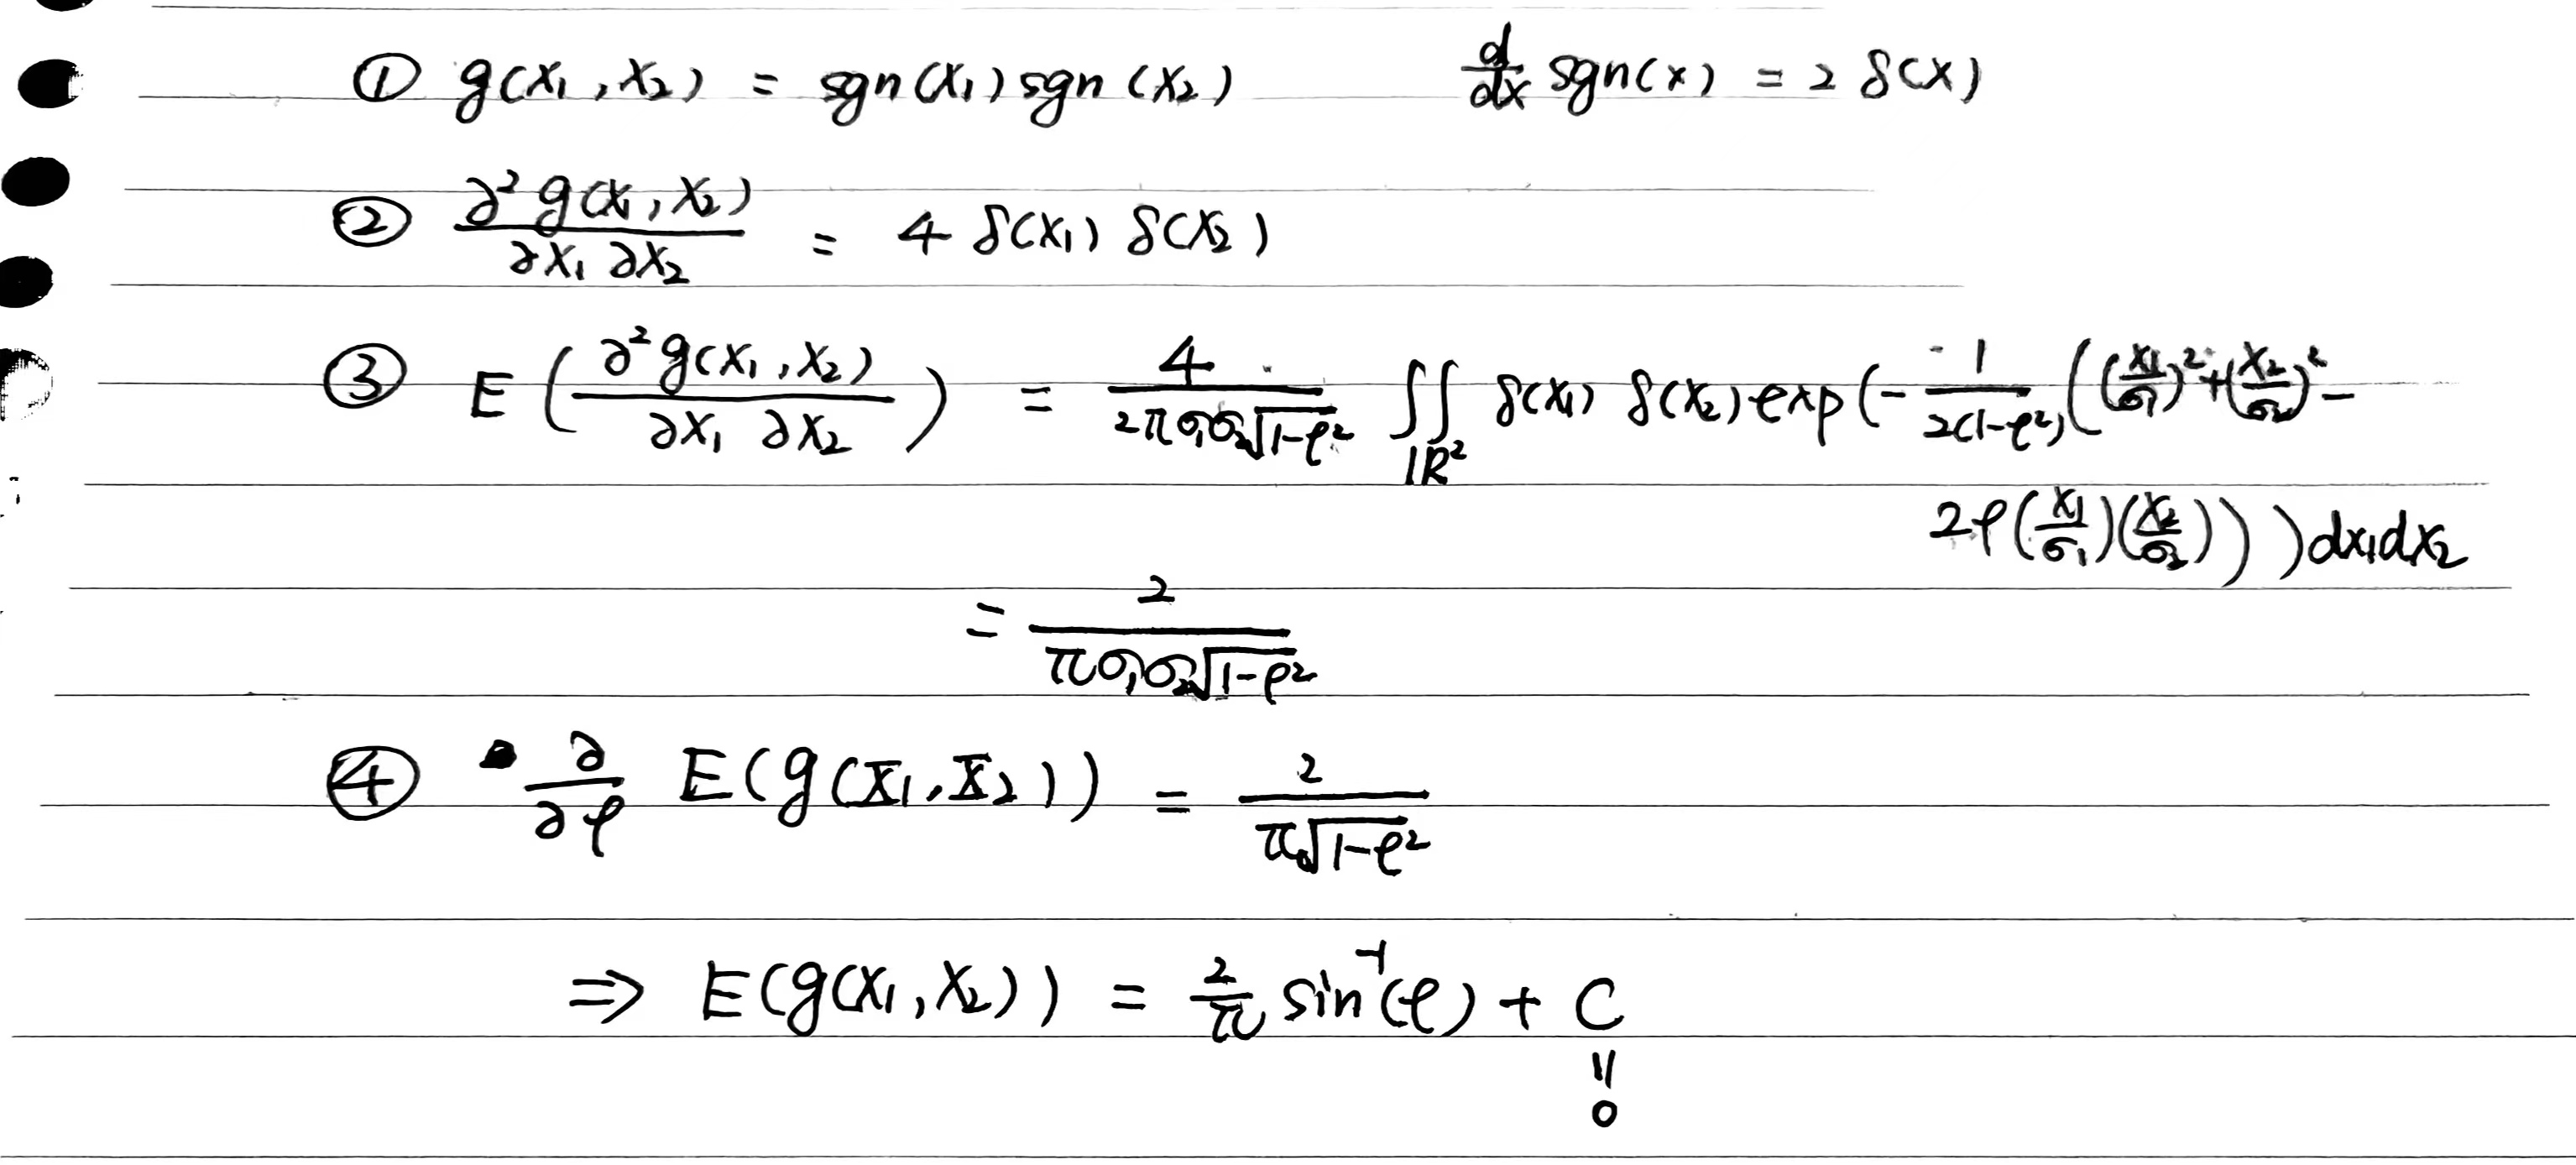 ① g(x₁, x₂) = sgn(x₁) sgn(x₂)    d/dx sgn(x) = 2 δ(x)
② ∂²g(x₁, x₂) / ∂x₁ ∂x₂ = 4 δ(x₁) δ(x₂)
③ E(∂²g(x₁, x₂) / ∂x₁ ∂x₂) = 4 / (2πσ₁σ₂√(1-ρ²)) ∬_ℝ² δ(x₁) δ(x₂) exp(- 1/(2(1-ρ²)) ((x₁/σ₁)² + (x₂/σ₂)² -
2ρ(x₁/σ₁)(x₂/σ₂)))dx₁dx₂
= 2 / (πσ₁σ₂√(1-ρ²))
④ ∂/∂ρ E(g(X₁, X₂)) = 2 / (π√(1-ρ²))
⇒ E(g(X₁, X₂)) = 2/π sin⁻¹(ρ) + C
=
0